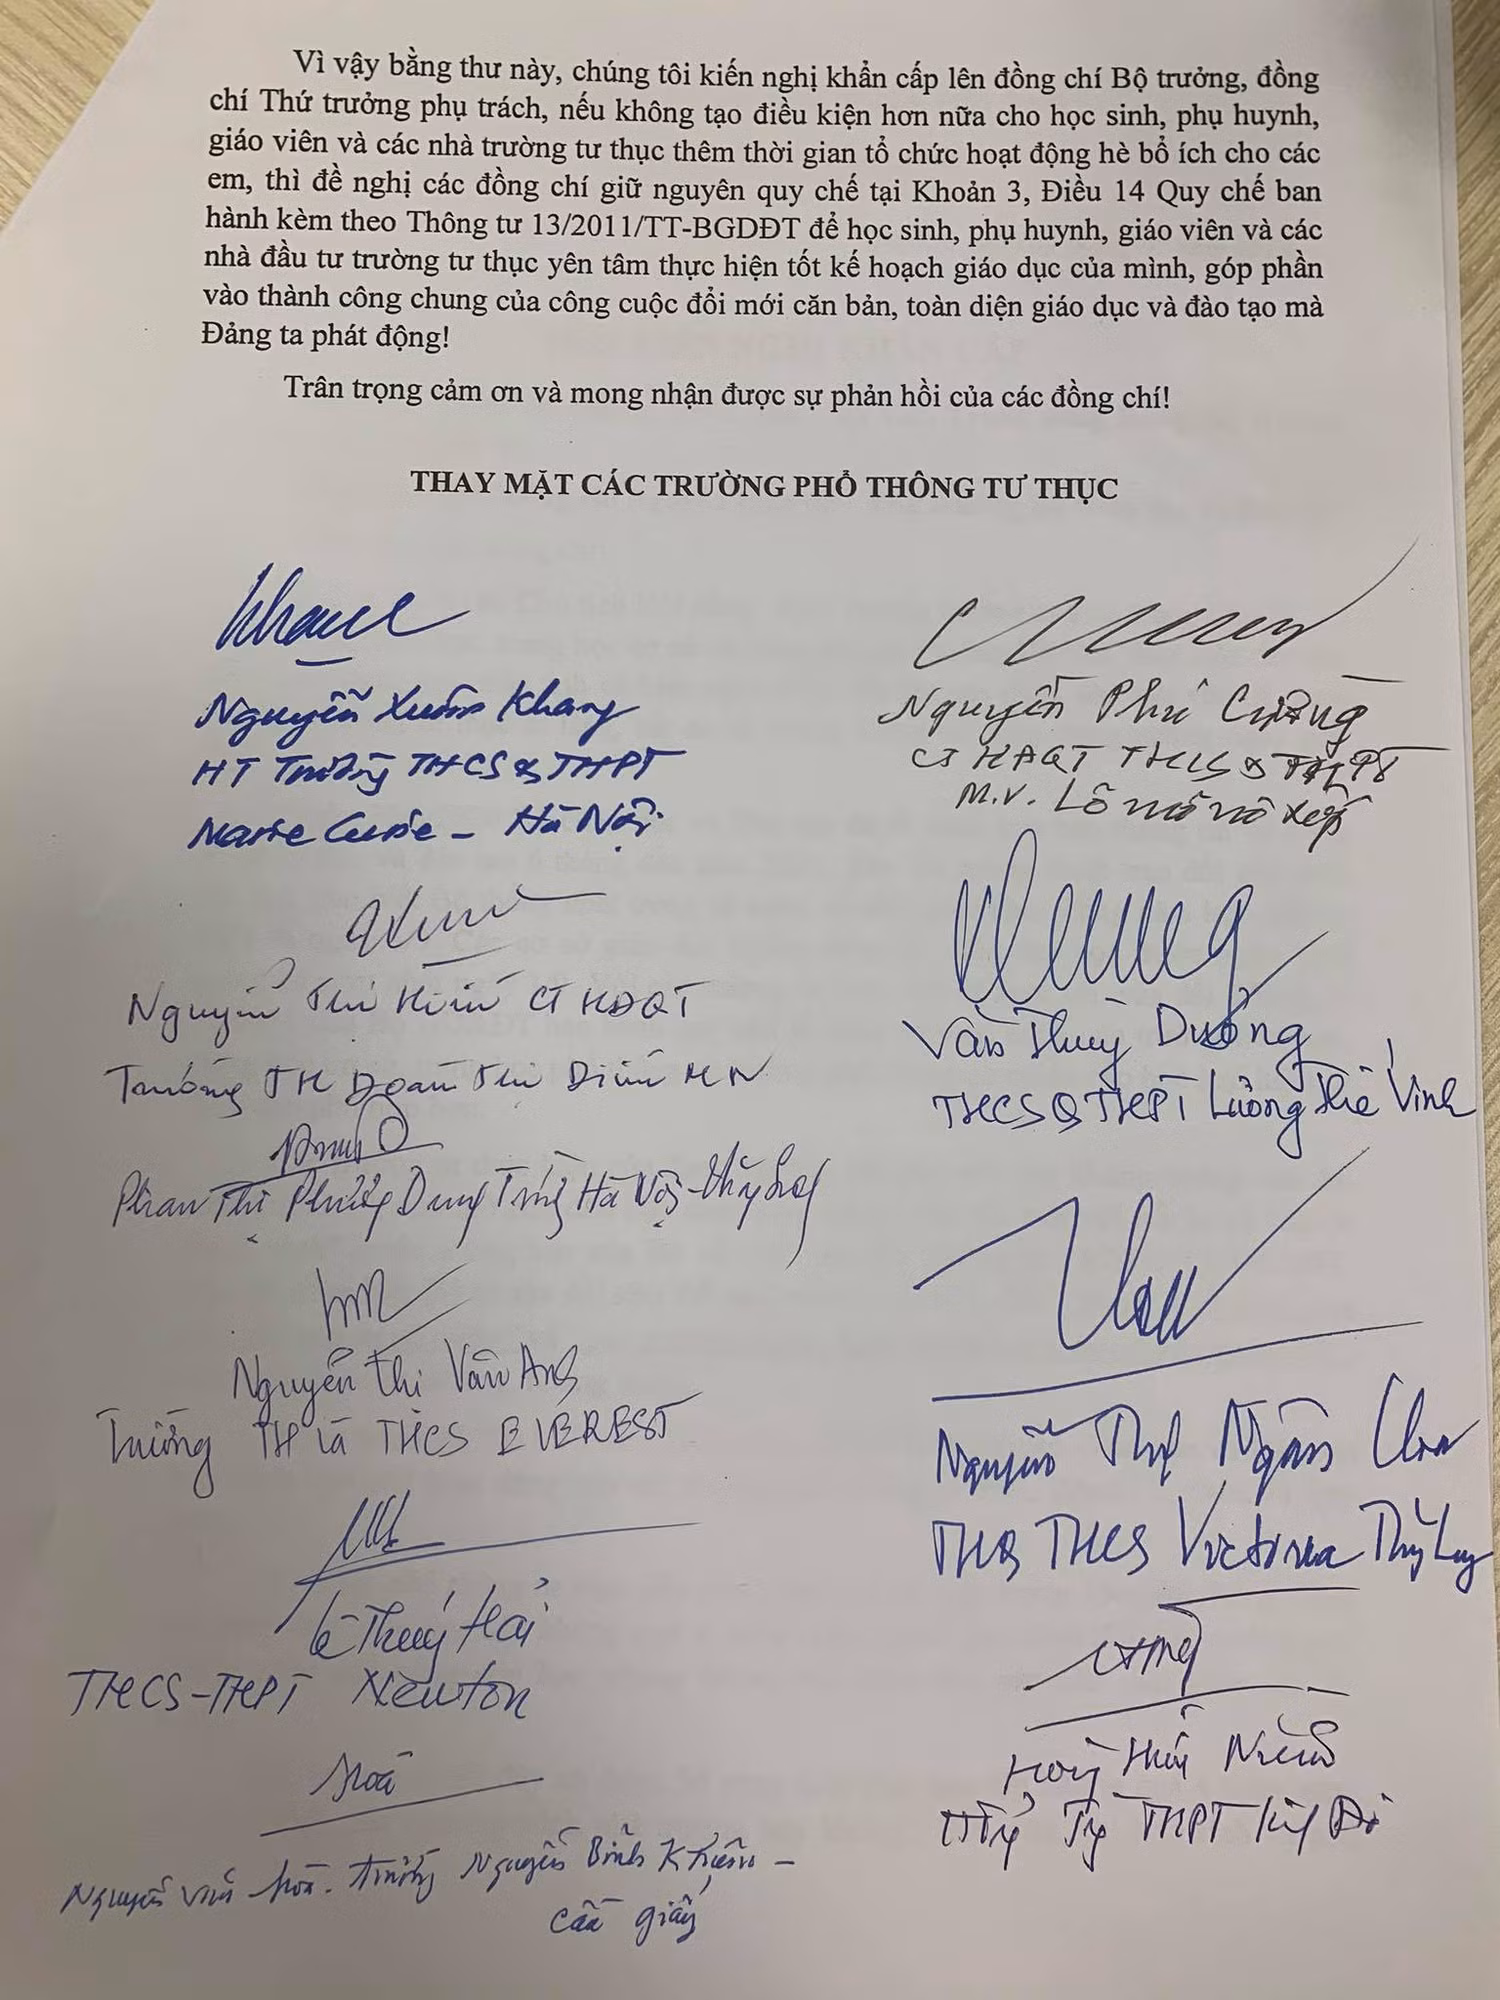 Vì vậy bằng thư này, chúng tôi kiến nghị khẩn cấp lên đồng chí Bộ trưởng, đồng
chí Thứ trưởng phụ trách, nếu không tạo điều kiện hơn nữa cho học sinh, phụ huynh,
giáo viên và các nhà trường tư thục thêm thời gian tổ chức hoạt động hè bổ ích cho các
em, thì đề nghị các đồng chí giữ nguyên quy chế tại Khoản 3, Điều 14 Quy chế ban
hành kèm theo Thông tư 13/2011/TT-BGDĐT để học sinh, phụ huynh, giáo viên và các
nhà đầu tư trường tư thục yên tâm thực hiện tốt kế hoạch giáo dục của mình, góp phần
vào thành công chung của công cuộc đổi mới căn bản, toàn diện giáo dục và đào tạo mà
Đảng ta phát động!
Trân trọng cảm ơn và mong nhận được sự phản hồi của các đồng chí!
THAY MẶT CÁC TRƯỜNG PHỔ THÔNG TƯ THỤC
Nguyễn Xuân Khang
HT Trường THCS & THPT
Marie Curie - Hà Nội
Nguyễn Phú Cường
CT HĐQT THCS & THPT
M.V. Lômônôxốp
Nguyễn Thị Hiền CT HĐQT
Trường TH Đoàn Thị Điểm HN
Văn Thuỳ Dương
THCS & THPT Lương Thế Vinh
Phan Thị Phương Dung Trường Hà Nội - Thăng Long
Nguyễn Thị Vân Anh
Trường TH và THCS EVEREST
Nguyễn Thị Ngân
TH & THCS Victoria Thăng Long
Lê Thuý Hải
THCS-THPT Newton
THPT
Nguyễn Văn Hoà. trường Nguyễn Bỉnh Khiêm -
Cầu giấy